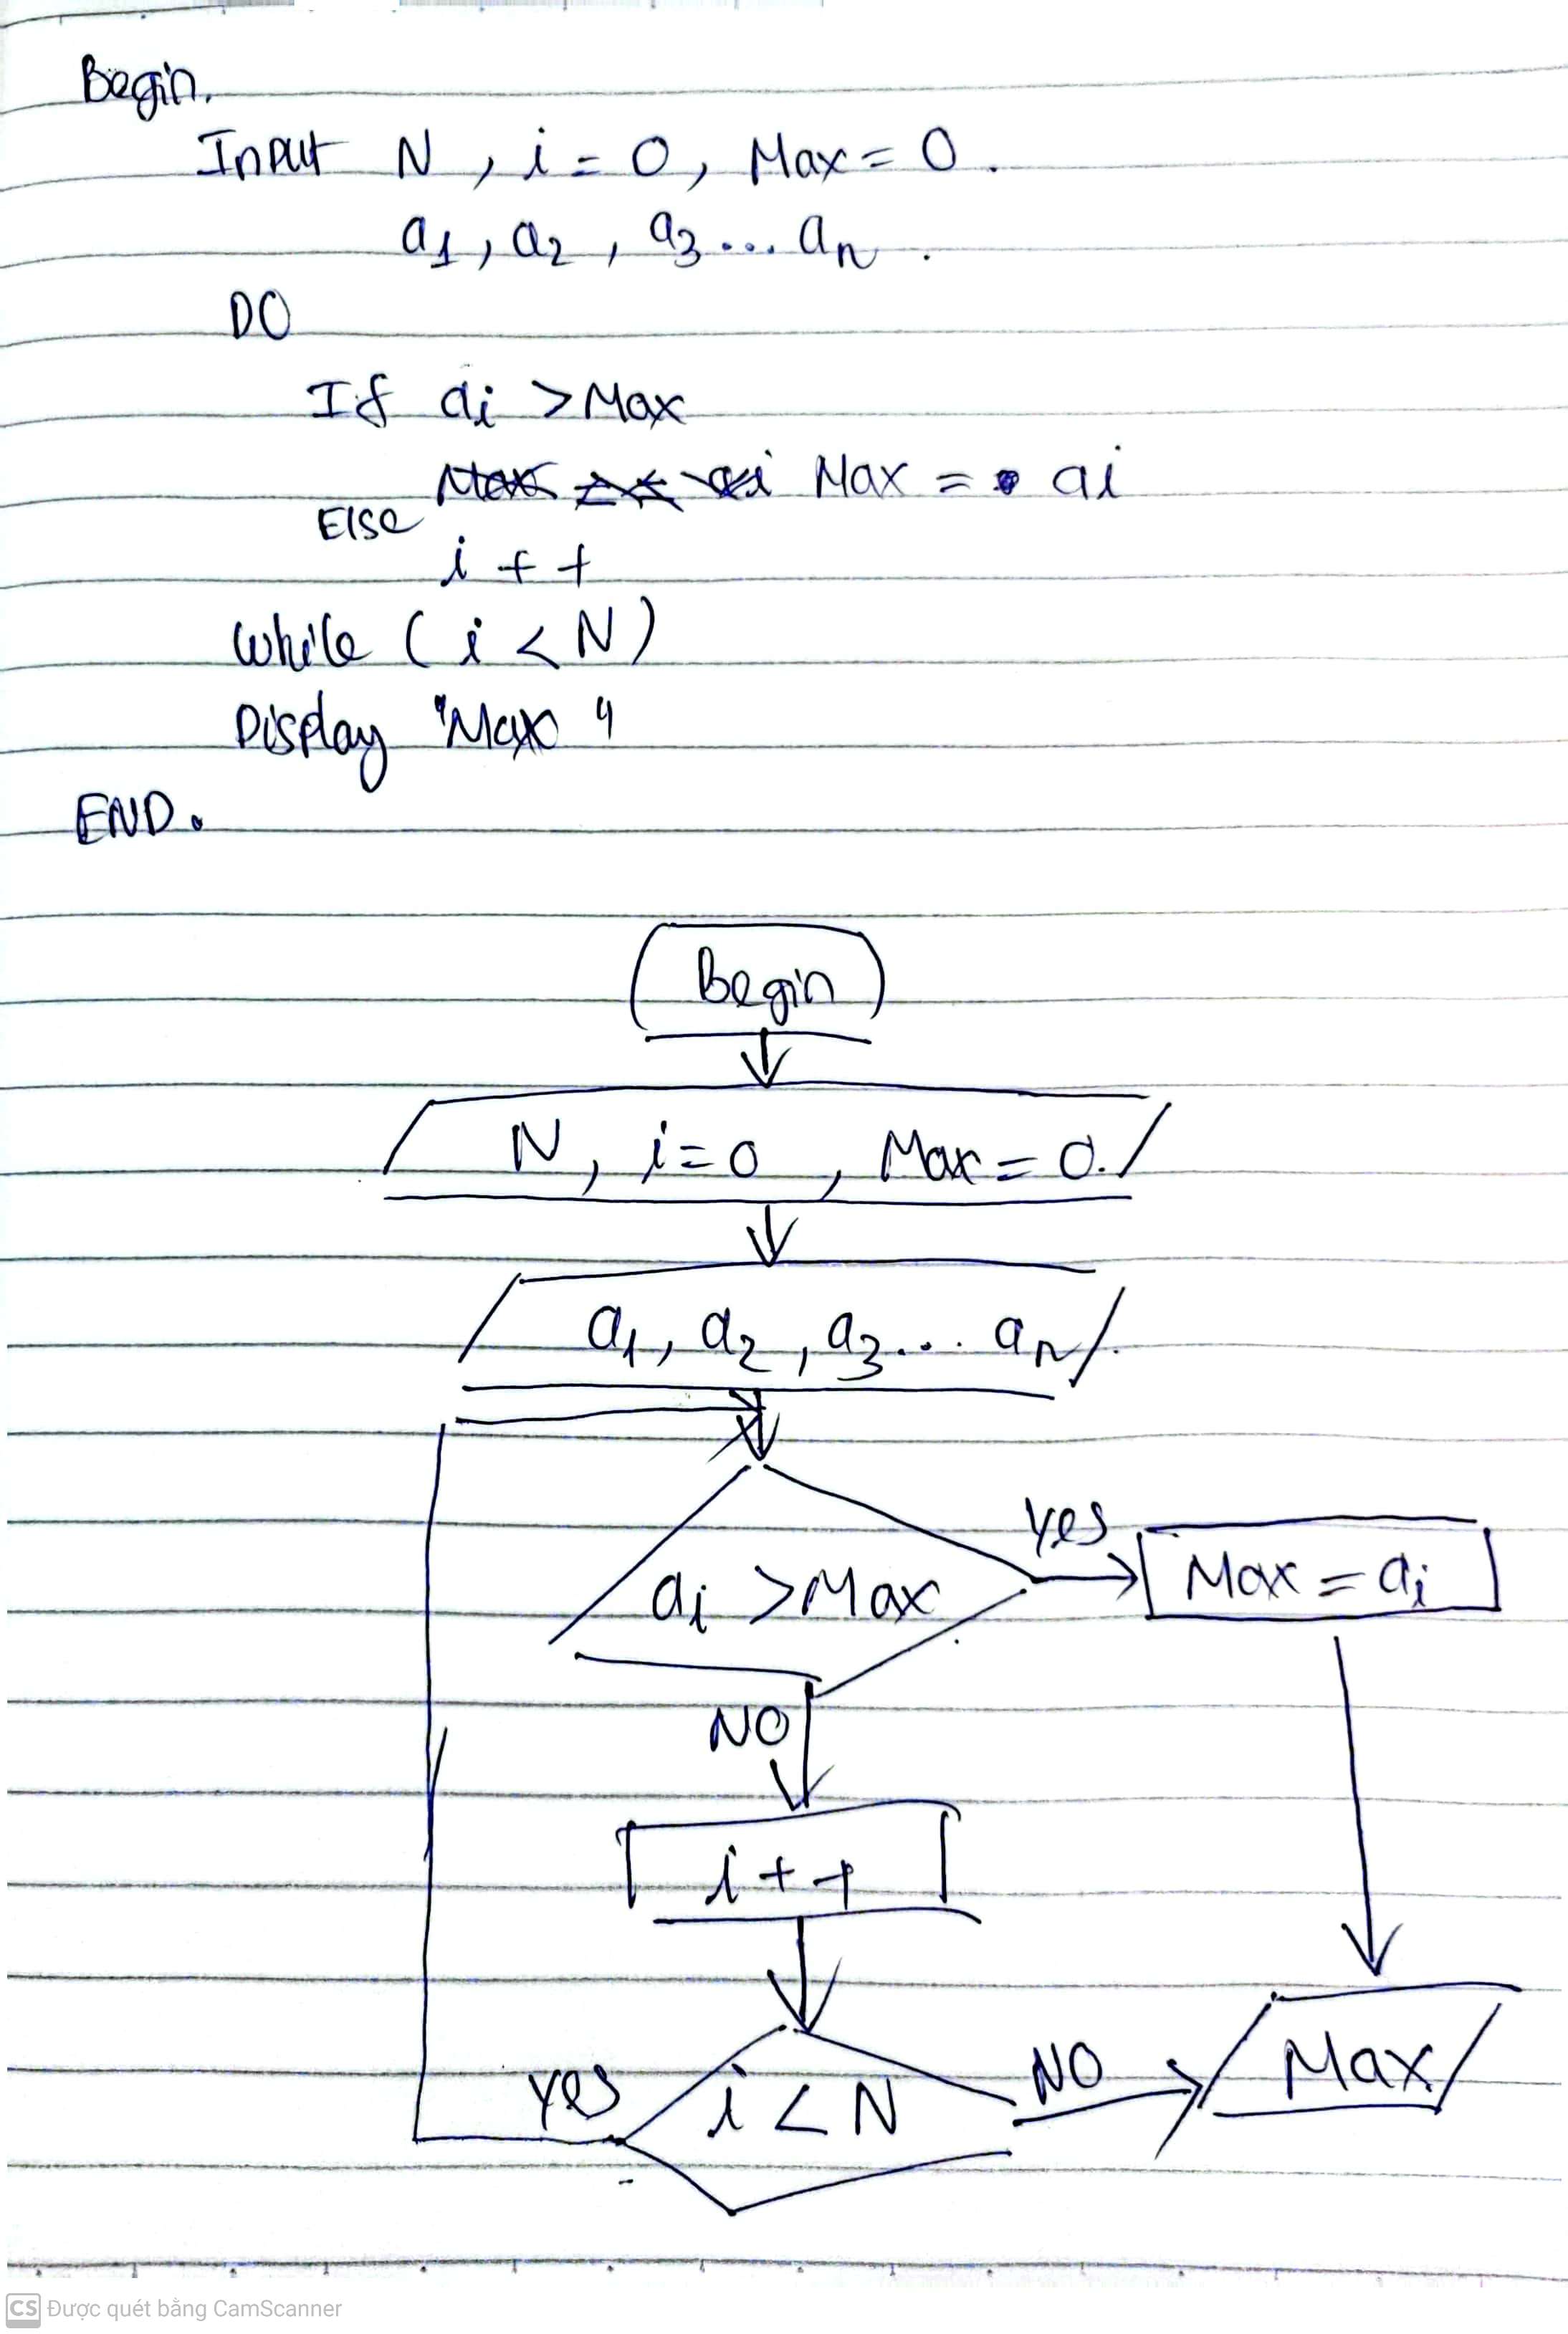 Begin.
Input N, i = 0, Max = 0.
a1, a2, a3... an.
DO
If ai > Max
Max = ai
Else
i++
While (i < N)
Display "Max"
END.
Begin
N, i=0, Max = 0.
a1, a2, a3... an.
ai > Max
Yes
Max = ai
NO
i++
Yes
i < N
NO
Max
CS Được quét bằng CamScanner